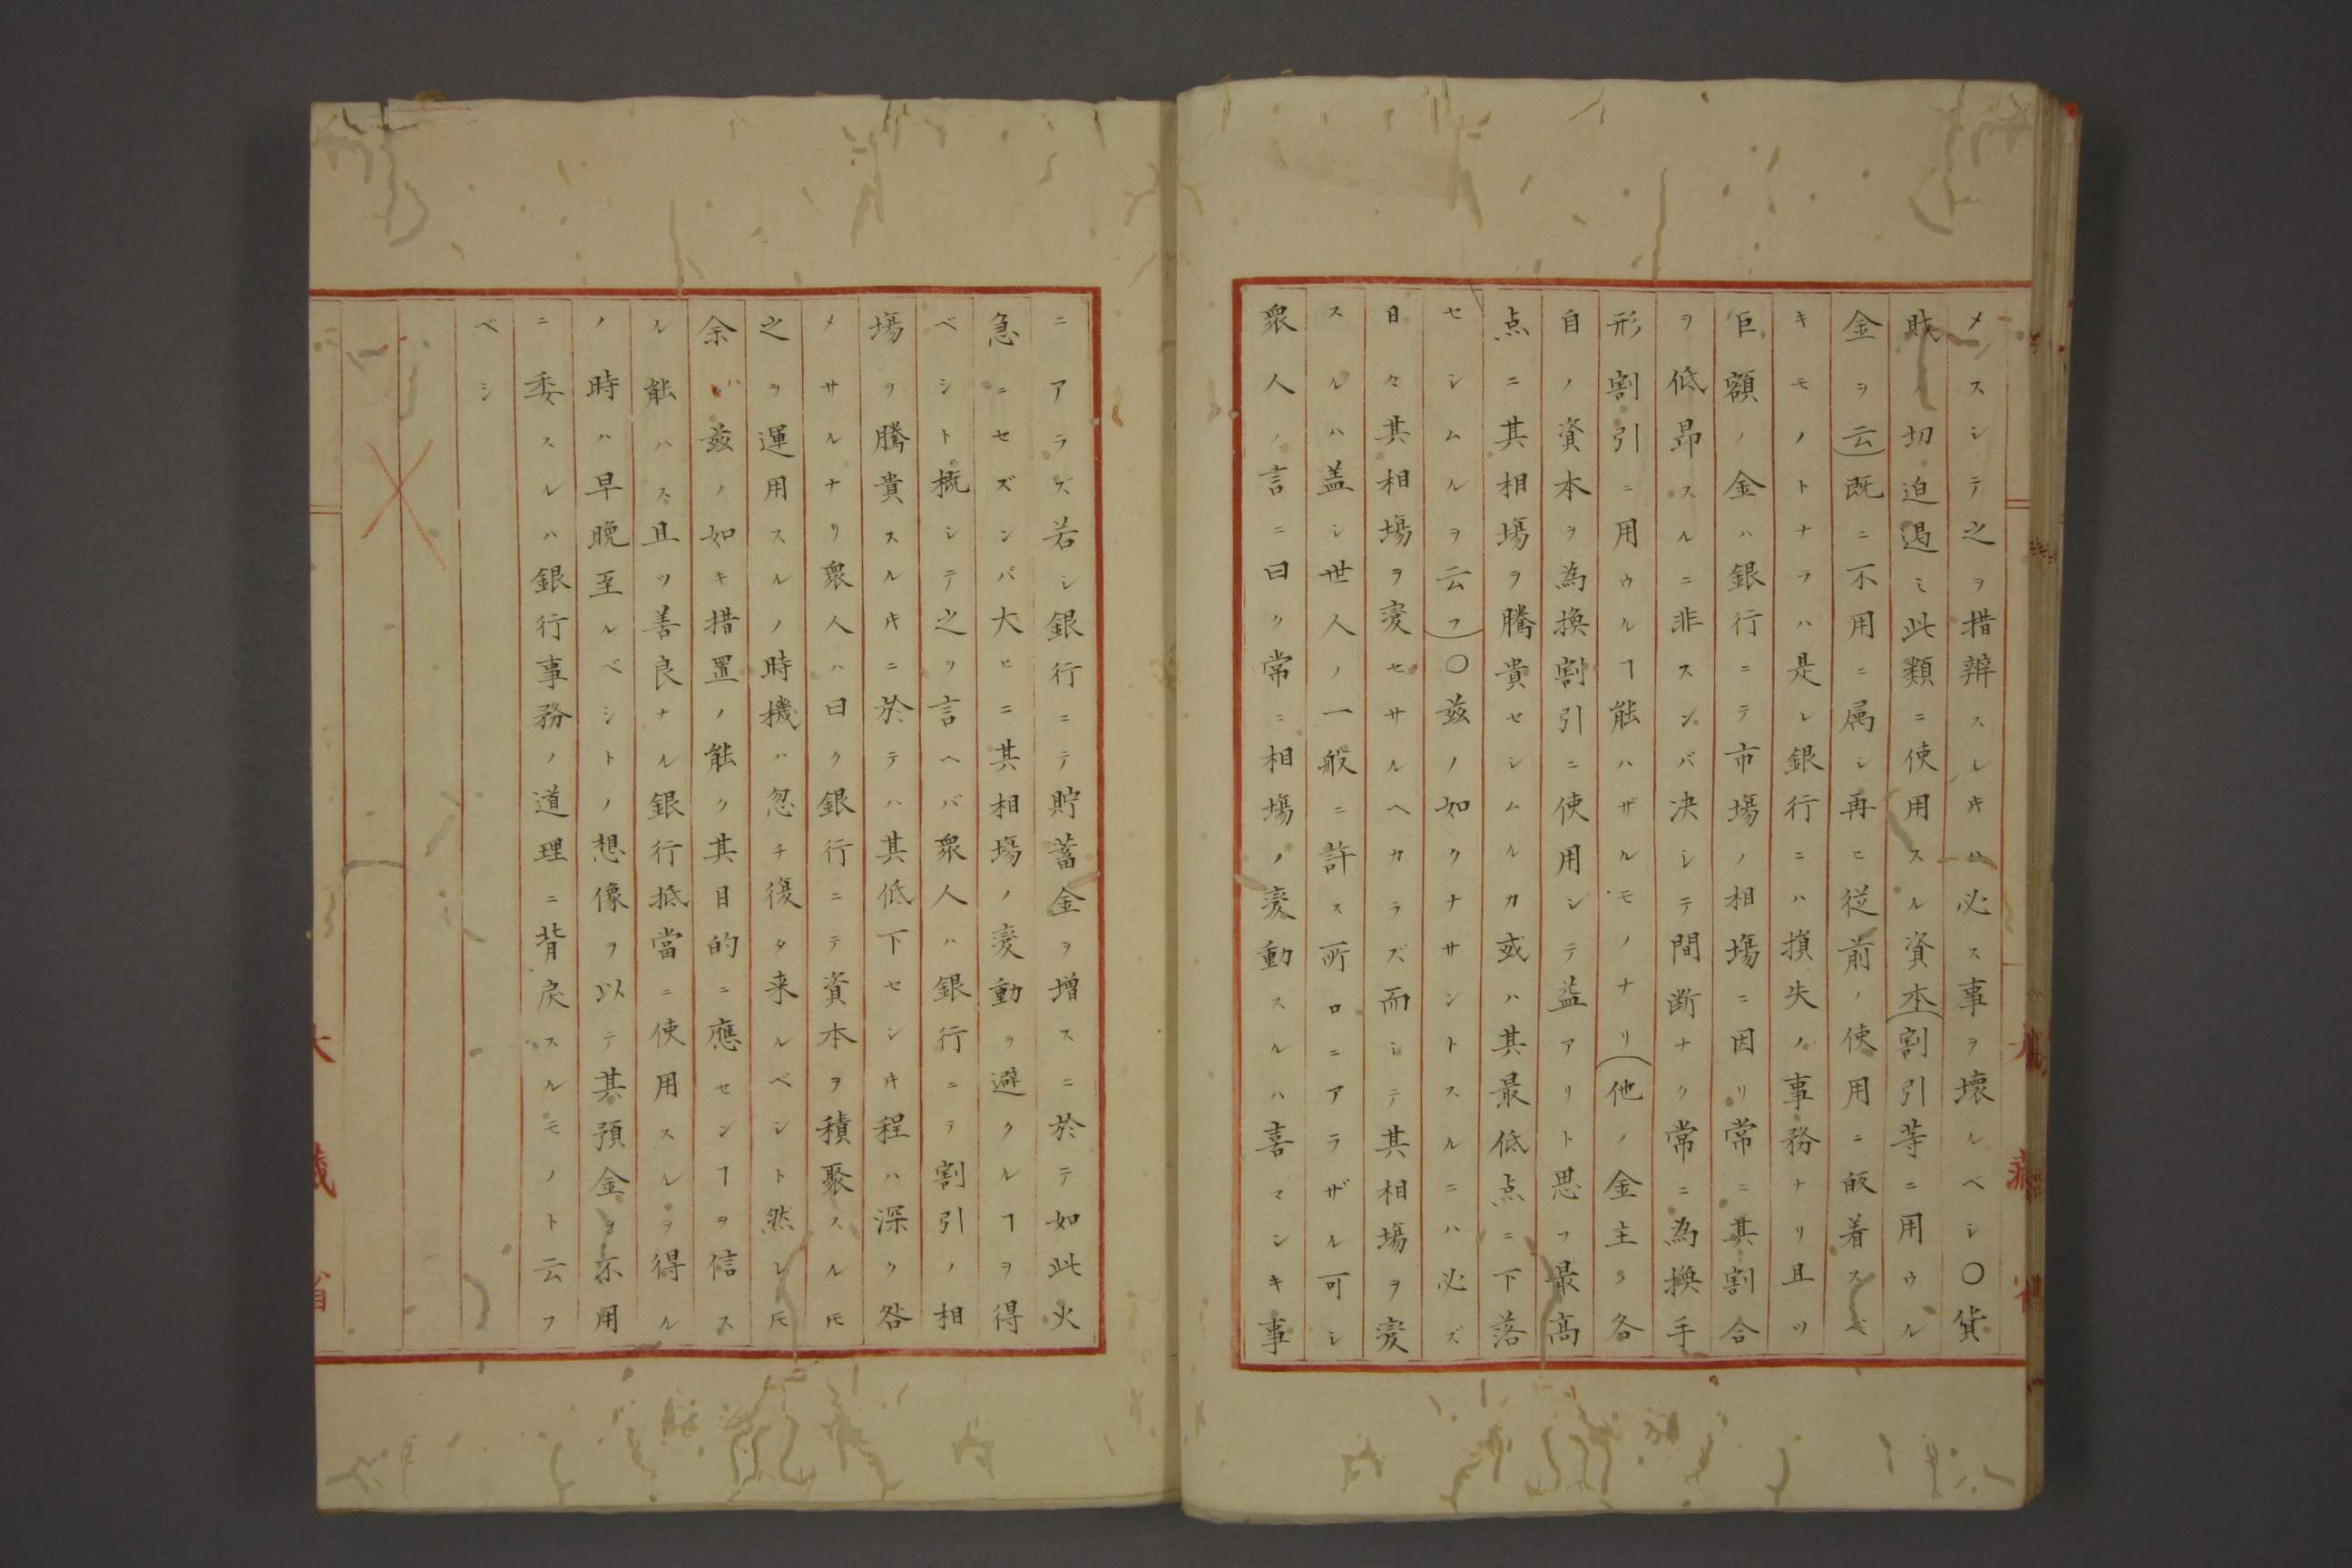 メスシテ之ヲ措辨スレ𪜈必ス事ヲ壊ルベシ〇貨
財ノ切迫遏ミ此類ニ使用スル資本(割引等ニ用ウル
金ヲ云)既ニ不用ニ属シ再ヒ従前ノ使用ニ皈着スベ
キモノトナラハ是レ銀行ニハ損失ノ事務ナリ且ツ
巨額ノ金ハ銀行ニテ市塲ノ相塲ニ因リ常ニ其割合
ヲ低昂スルニ非スンバ决シテ間断ナク常ニ為換手
形割引ニ用ウルヿ能ハザルモノナリ(他ノ金主ラ各
自ノ資本ヲ為換割引ニ使用シテ益アリト思フ最高
点ニ其相塲ヲ騰貴セシムルカ或ハ其最低点ニ下落
セシムルヲ云フ)〇兹ノ如クナサントスルニハ必ズ
日々其相塲ヲ変セサルヘカラズ而シテ其相塲ヲ変
スルハ盖シ世人ノ一般ニ許ス所ロニアラザル可シ
衆人ノ言ニ曰ク常ニ相塲ノ変動スルハ喜マシキ事
ニアラズ若シ銀行ニテ貯蓄金ヲ増スニ於テ如此火
急ニセズンバ大ヒニ其相塲ノ変動ヲ避クルヿヲ得
ベシト概シテ之ヲ言ヘバ衆人ハ銀行ニテ割引ノ相
塲ヲ騰貴スルキニ於テハ其低下セシキ程ハ深ク咎
メサルナリ衆人ハ曰ク銀行ニテ資本ヲ積聚スル𪜈
之ヲ運用スルノ時機ハ忽チ復タ来ルベシト然レ𪜈
余ハ兹ノ如キ措置ノ能ク其目的ニ應センヿヲ信ス
ル能ハス且ツ善良ナル銀行抵當ニ使用スルヲ得ル
ノ時ハ早晩至ルベシトノ想像ヲ以テ其預金ヲ不用
ニ委スルハ銀行事務ノ道理ニ背戻スルモノト云フ
ベシ
大藏省